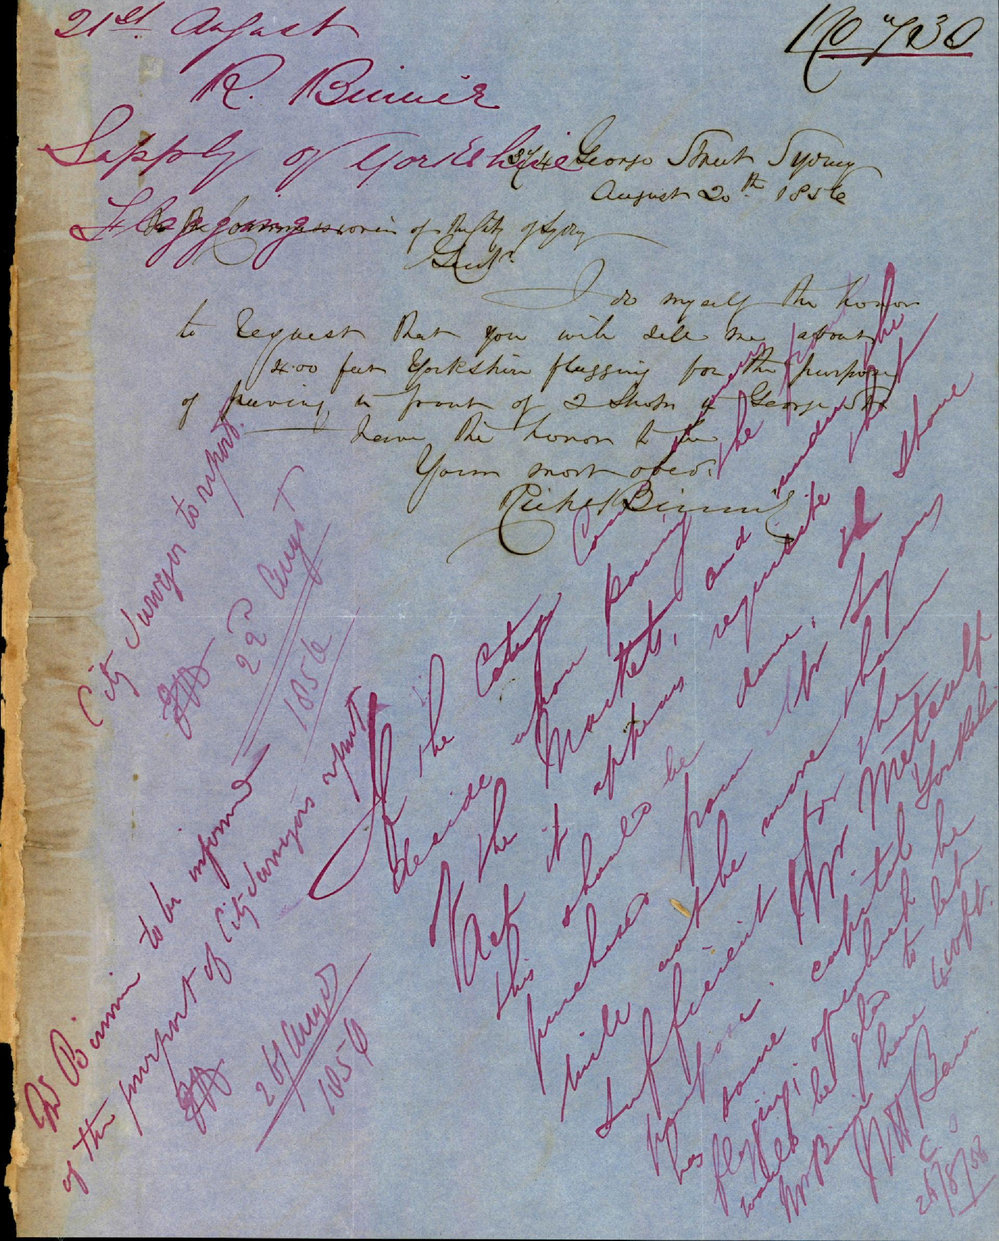 21st August
R. Binnie
Supply of Yorkshire
Flagging
No 730
George Street Sydney
August 20th 1856
To the Commissioners of the City of Sydney
Gentn
I do myself the honor
to request that you will sell me about
400 feet Yorkshire flagging for the purpose
of paving in front of 2 Shops in George
I have the honor to be
Your most obed.
Richd Binnie
City Surveyor to report.
22d Augt
1856
Mr Binnie to be informed
of the purport of City Surveyors report
26 Augt
1856
If the City Commissioners
decide upon paving the front
of the Markets, and under the
Act it appears requisite that
this should be done, the stone
purchased from Mr Lyons
will not be more than
sufficient for the
purpose. Mr Metcalf
has some capital Yorkshire
flagging, of which he
would be glad to let
Mr Binnie have 400 ft.
26/8/56